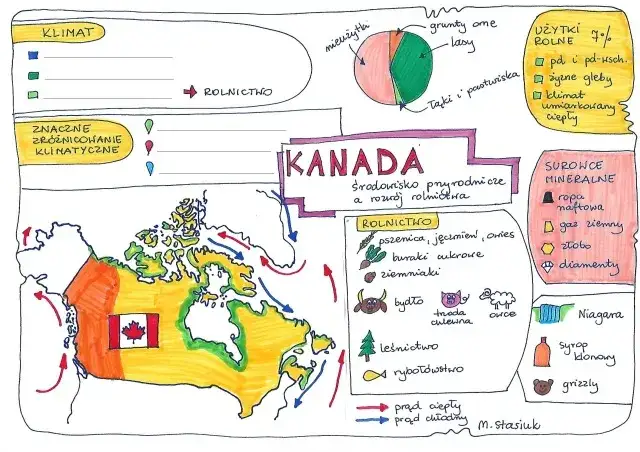 KLIMAT
→ ROLNICTWO
ZNACZNE
ZRÓŻNICOWANIE
KLIMATYCZNE
nieużytki
grunty orne
lasy
łąki i pastwiska
UŻYTKI
ROLNE 7%
pd. i pd-wsch.
żyzne gleby
klimat
umiarkowany
ciepły
KANADA
środowisko przyrodnicze
a rozwój rolnictwa
SUROWCE
MINERALNE
ropa
naftowa
gaz ziemny
złoto
diamenty
ROLNICTWO
pszenica, jęczmień, owies
buraki cukrowe
ziemniaki
bydło
trzoda
chlewna
owce
leśnictwo
rybołówstwo
Niagara
syrop
klonowy
grizzly
prąd ciepły
prąd chłodny
M. Stasiuk